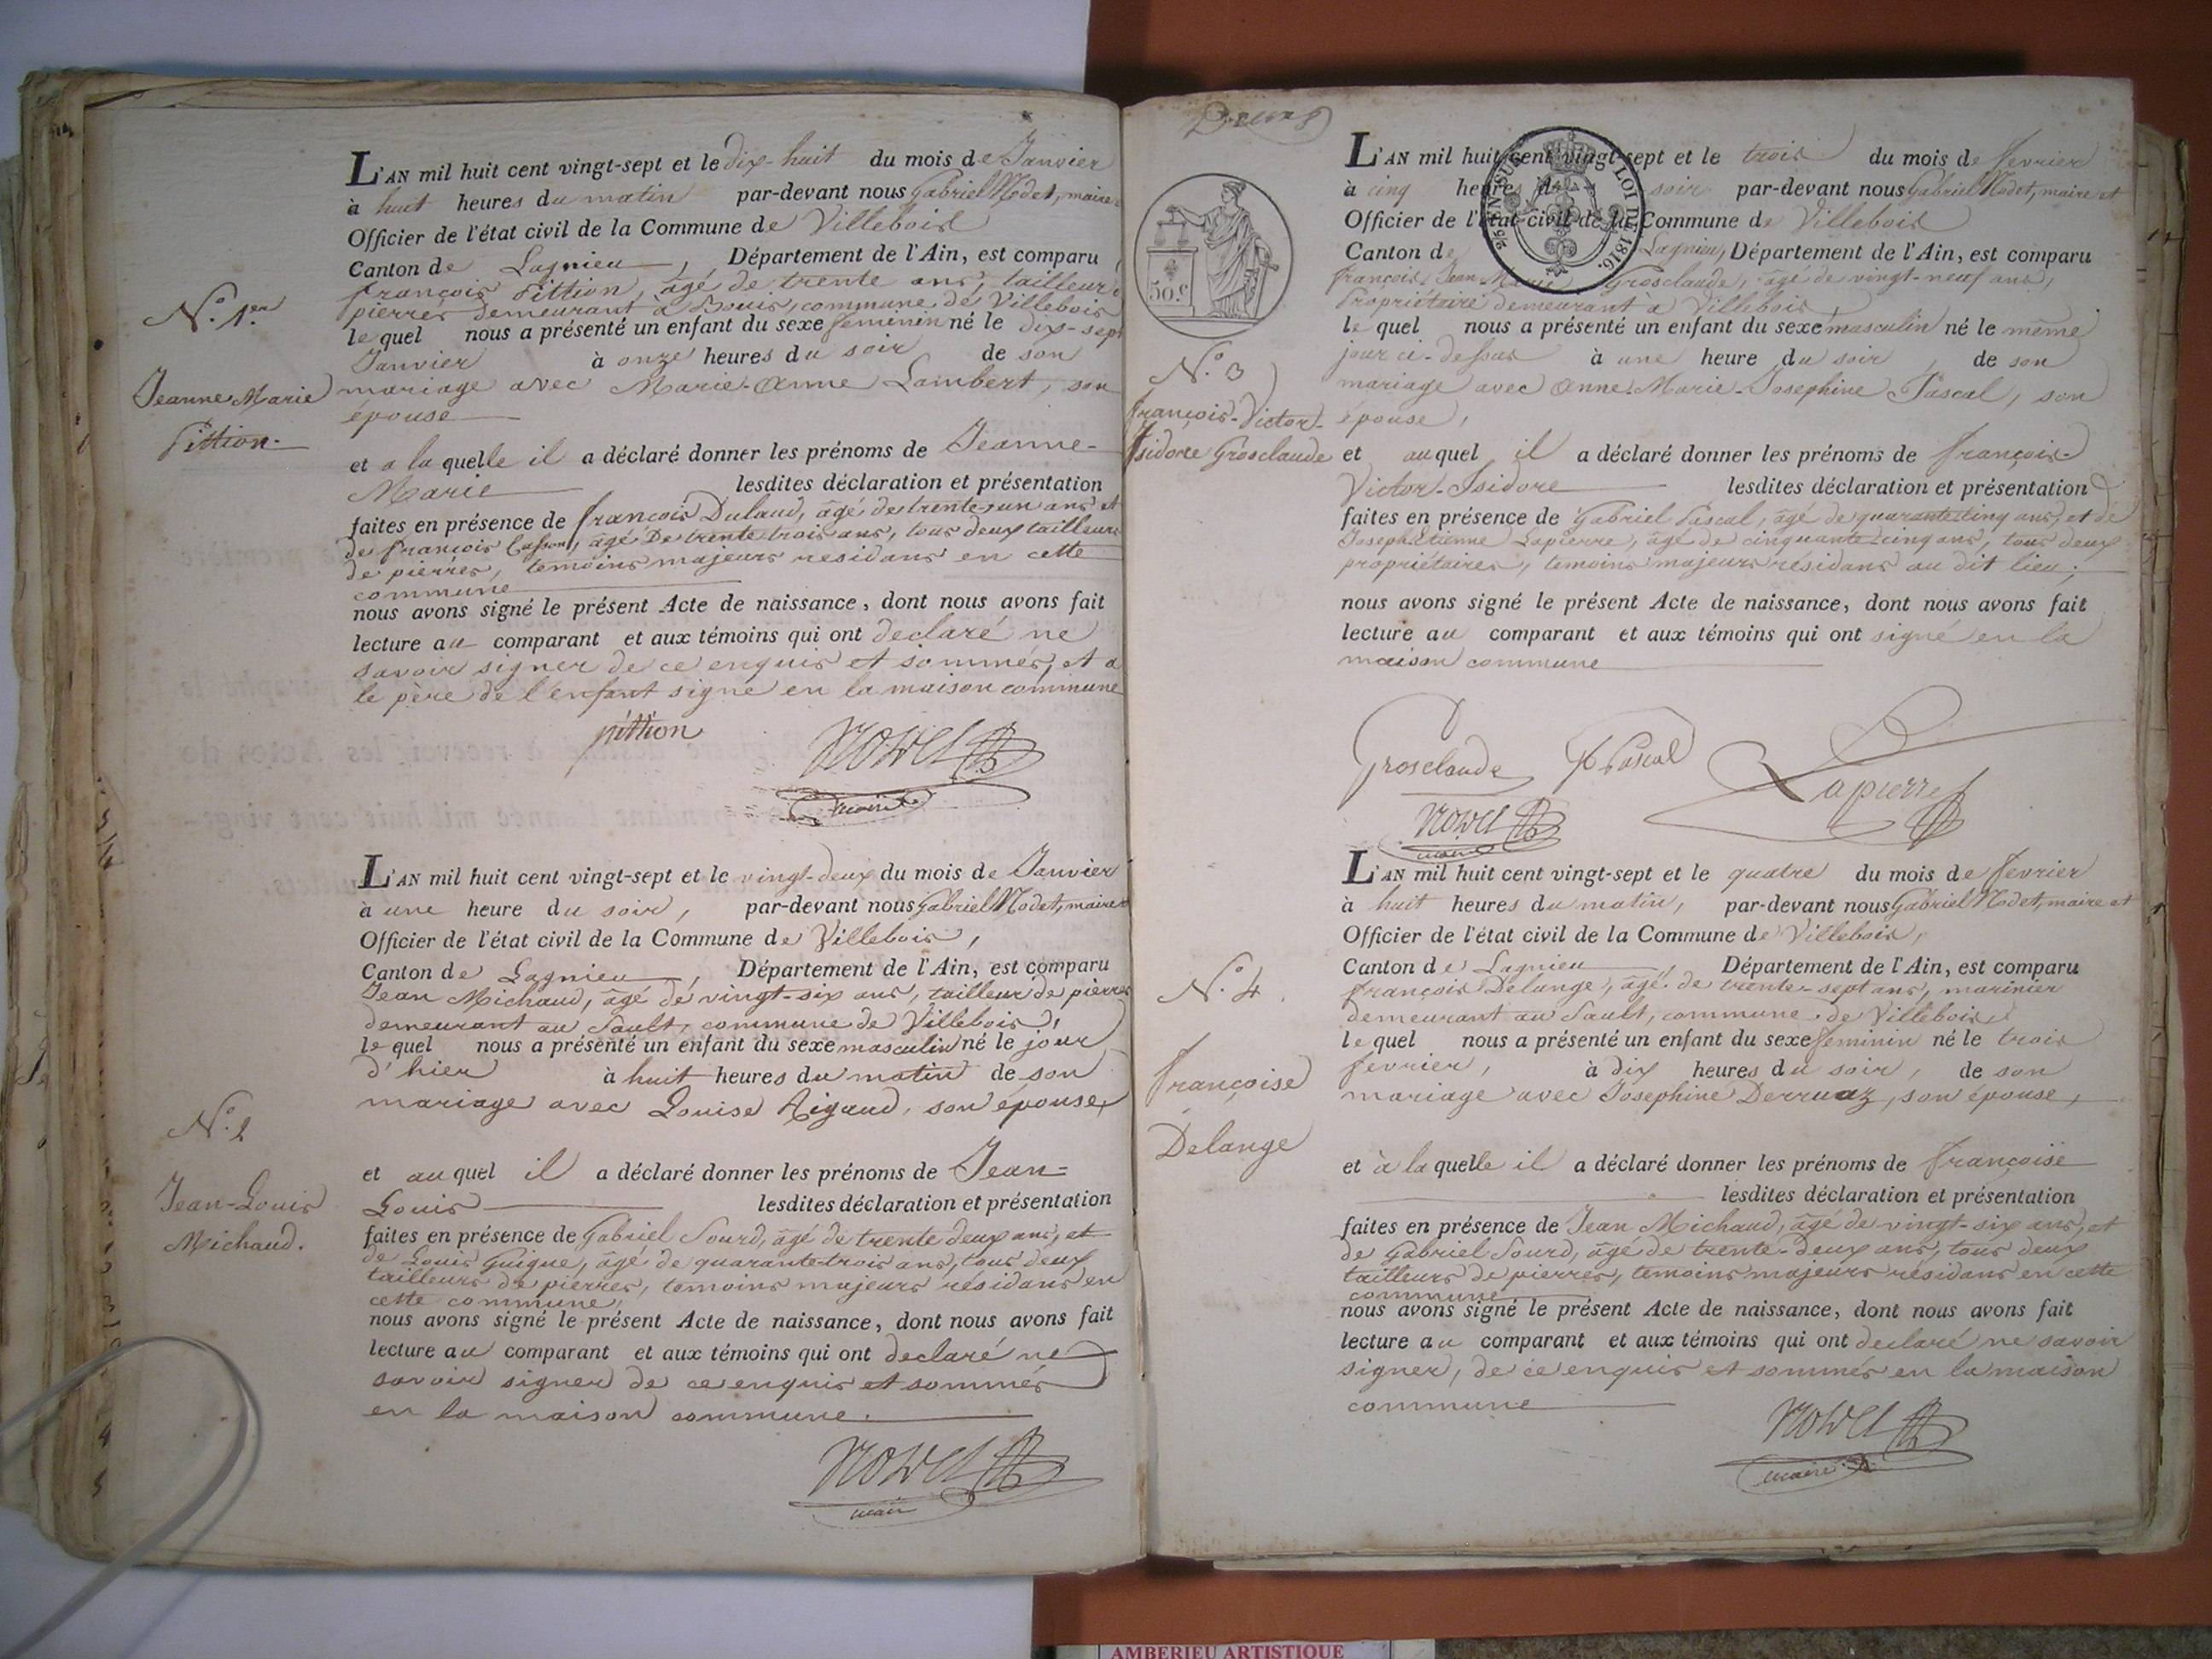 L'AN mil huit cent vingt-sept et le dix-huit du mois de Janvier
à huit heures du matin par-devant nous Gabriel Nodet, maire
Officier de l'état civil de la Commune de Villebois
Canton de Lagnieu, Département de l'Ain, est comparu
françois Pittion, âgé de trente ans, tailleur de
pierres demeurant à Bouis, commune de Villebois
N.° 1.er
le quel nous a présenté un enfant du sexe feminin né le dix-sept
Janvier à onze heures du soir de son
Jeanne Marie
mariage avec Marie-Anne Lambert, son
épouse
Pittion
et a la quelle il a déclaré donner les prénoms de Jeanne-
Marie lesdites déclaration et présentation
faites en présence de françois Dulaud, âgé de trente-un ans et
de françois Casson, âgé de trente trois ans, tous deux tailleurs
de pierres, temoins majeurs residans en cette
commune
nous avons signé le présent Acte de naissance, dont nous avons fait
lecture au comparant et aux témoins qui ont declaré ne
savoir signer de ce enquis et sommés, et a
le père de l'enfant signé en la maison commune
pittion Nodet
maire
L'AN mil huit cent vingt-sept et le vingt-deux du mois de Janvier
à une heure du soir, par-devant nous Gabriel Nodet, maire et
Officier de l'état civil de la Commune de Villebois,
Canton de Lagnieu, Département de l'Ain, est comparu
Jean Michaud, âgé de vingt-six ans, tailleur de pierres
demeurant au Sault, commune de Villebois,
le quel nous a présenté un enfant du sexe masculin né le jour
d'hier à huit heures du matin de son
mariage avec Louise Rigaud, son épouse,
N.° 2
et au quel il a déclaré donner les prénoms de Jean=
Jean-Louis
Michaud.
Louis lesdites déclaration et présentation
faites en présence de Gabriel Sourd, âgé de trente deux ans, et
de Louis Guigue, âgé de quarante-trois ans, tous deux
tailleurs de pierres, temoins majeurs résidans en
cette commune,
nous avons signé le présent Acte de naissance, dont nous avons fait
lecture au comparant et aux témoins qui ont declaré ne
savoir signer de ce enquis et sommés
en la maison commune.
Nodet
maire
L'AN mil huit cent vingt-sept et le trois du mois de fevrier
à cinq heures du soir par-devant nous Gabriel Nodet, maire et
Officier de l'état civil de la Commune de Villebois
Canton de Lagnieu, Département de l'Ain, est comparu
LOI DE 1816.
50.c
françois Jean Marie Grosclaude, âgé de vingt-neuf ans,
Propriétaire demeurant à Villebois,
le quel nous a présenté un enfant du sexe masculin né le même
N.° 3
jour ci-dessus à une heure du soir, de son
mariage avec Anne-Marie-Josephine Pascal, son
épouse,
françois-Victor-
Isidore Grosclaude
et au quel il a déclaré donner les prénoms de françois-
Victor-Isidore lesdites déclaration et présentation
faites en présence de Gabriel Pascal, âgé de quarante cinq ans, et de
Joseph Etienne Lapierre, âgé de cinquante-cinq ans, tous deux
propriétaires, temoins majeurs résidans au dit lieu;
nous avons signé le présent Acte de naissance, dont nous avons fait
lecture au comparant et aux témoins qui ont signé en la
maison commune
Grosclaude Pascal Lapierre
Nodet
maire
L'AN mil huit cent vingt-sept et le quatre du mois de fevrier
à huit heures du matin, par-devant nous Gabriel Nodet, maire et
Officier de l'état civil de la Commune de Villebois,
Canton de Lagnieu, Département de l'Ain, est comparu
N.° 4.
françois Delange, âgé de trente-sept ans, marinier
demeurant au Sault, commune de Villebois
le quel nous a présenté un enfant du sexe feminin né le trois
fevrier, à dix heures du soir, de son
mariage avec Josephine Derruaz, son épouse,
françoise
Delange
et à la quelle il a déclaré donner les prénoms de françoise
lesdites déclaration et présentation
faites en présence de Jean Michaud, âgé de vingt-six ans, et
de Gabriel Sourd, âgé de trente-deux ans, tous deux
tailleurs de pierres, temoins majeurs résidans en cette
commune
nous avons signé le présent Acte de naissance, dont nous avons fait
lecture au comparant et aux témoins qui ont declaré ne savoir
signer, de ce enquis et sommés en la maison
commune
Nodet
maire
AMBERIEU ARTISTIQUE